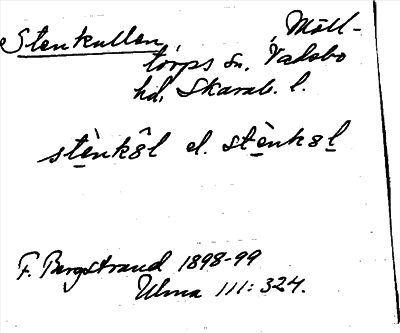 Stenkullen, Möll-
torps sn, Vadsbo
hd, Skarab. l.
stènkôl el. stènkol
F. Bergstrand 1898-99
Ulma 111: 324.